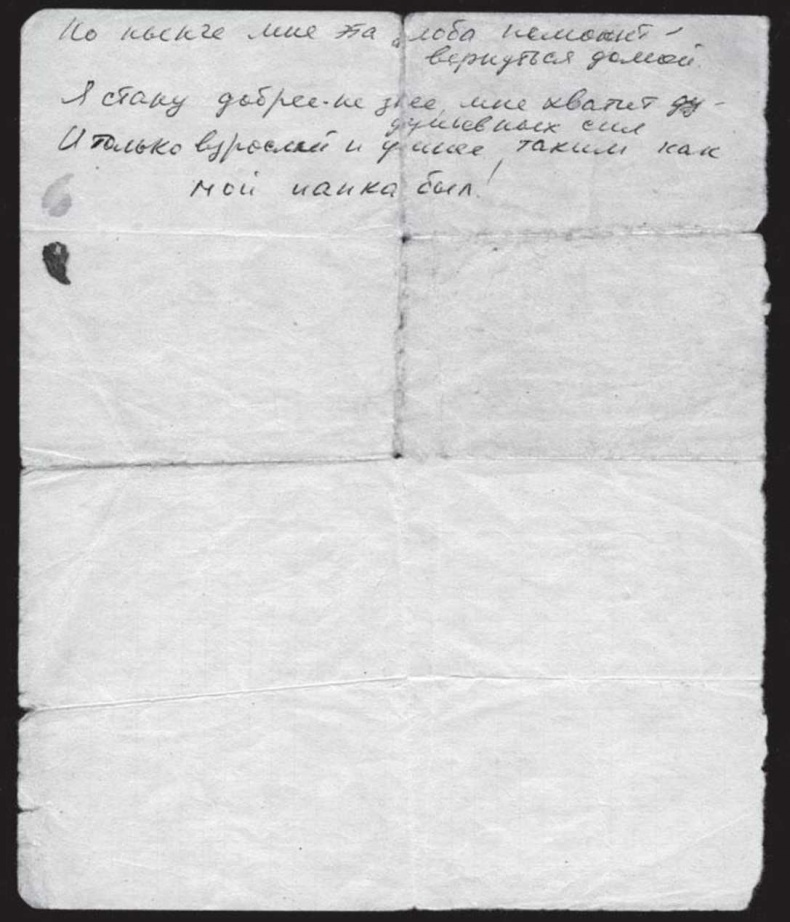 Но нынче мне эта злоба поможет
вернуться домой.
Я стану добрее - не злее, мне хватит ду-
душевных сил
И только взрослей и умнее, таким как
мой папка был!